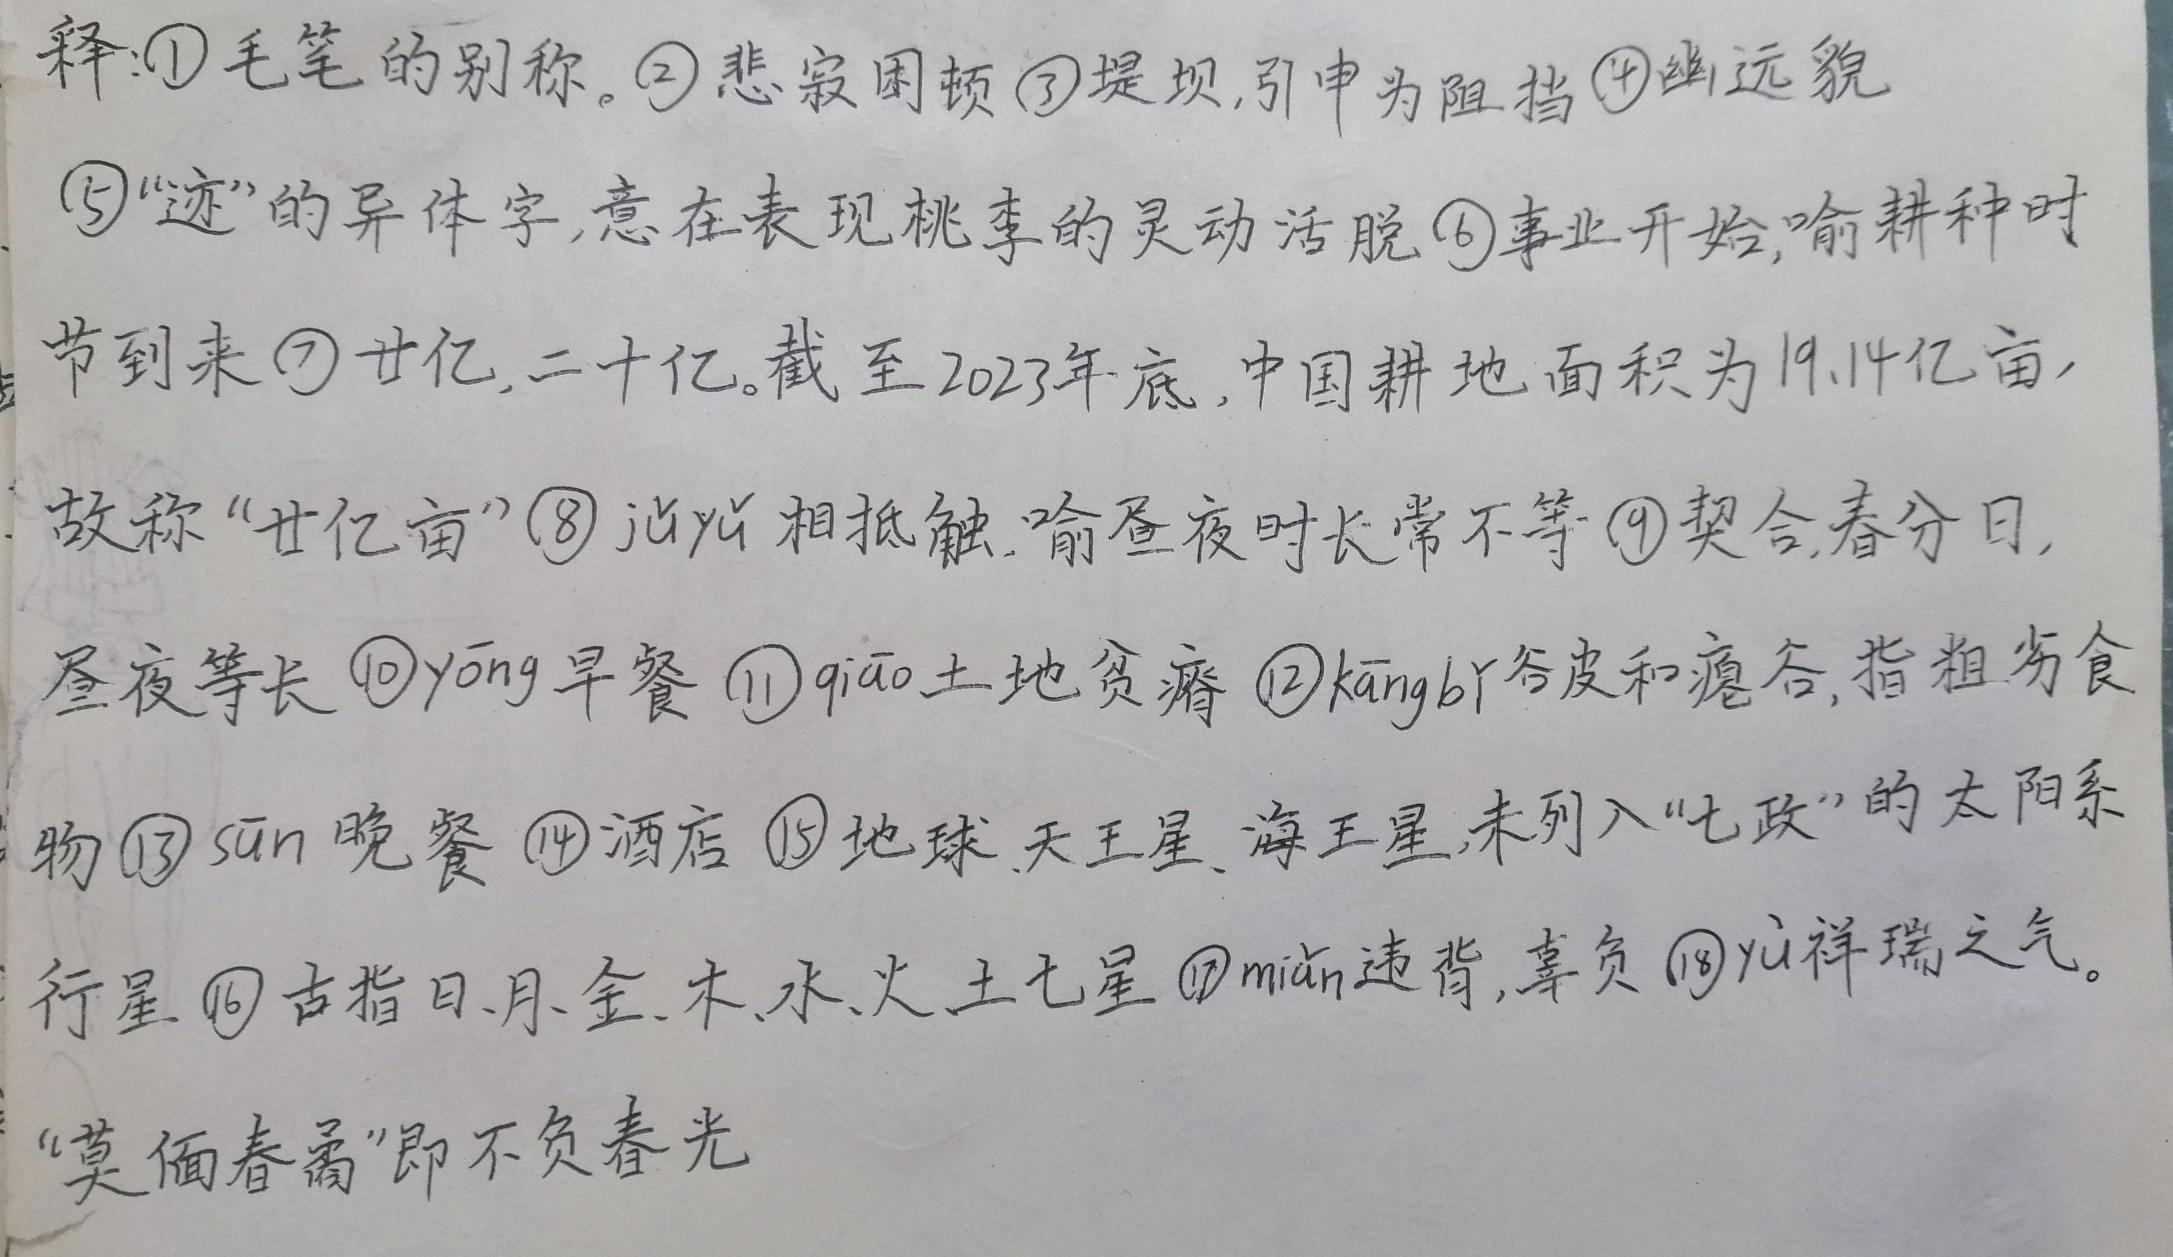 释:①毛笔的别称。②悲寂困顿③堤坝,引申为阻挡④幽远貌
⑤“迹”的异体字,意在表现桃李的灵动活脱⑥事业开始,喻耕种时
节到来⑦廿亿,二十亿。截至2023年底,中国耕地面积为19.14亿亩,
故称“廿亿亩”⑧jǔyǔ相抵触,喻昼夜时长常不等⑨契合,春分日,
昼夜等长⑩yōng早餐⑪qiāo土地贫瘠⑫kāngbǐ谷皮和瘪谷,指粗劣食
物⑬sūn晚餐⑭酒店⑮地球、天王星、海王星,未列入“七政”的太阳系
行星⑯古指日、月、金、木、水、火、土七星⑰miǎn违背,辜负⑱yù祥瑞之气。
“莫偭春矞”即不负春光